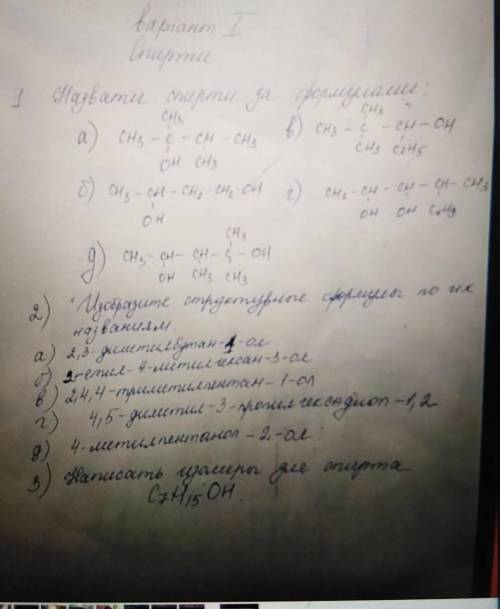 Вариант I
Спирти
1 Назвати спирти за формулами:
CH3
а) CH3 - C - CH - CH3
OH CH3
CH3
в) CH3 - C - CH - OH
CH3 C2H5
б) CH3 - CH - CH2 - CH2OH
OH
г) CH2 - CH - CH - CH - CH3
OH OH
CH3
д) CH3 - CH - CH - C - OH
OH CH3 CH3
2) Изобразите структурные формулы по их
названиям.
а) 2,3-диметилбутан-1-ол
б) 2-етил-4-метилгексан-3-ол
в) 2,4,4-триметилпентан-1-ол
г) 4,5-диметил-3-пропилгексадиол-1,2
д) 4-метилпентанол-2-ол
3) Написать изомеры для спирта
C7H15OH.